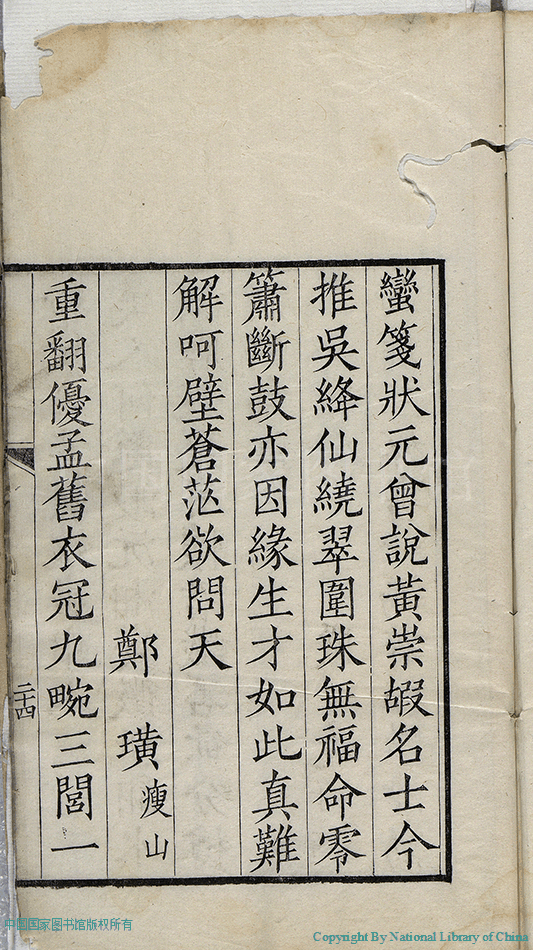 蠻箋狀元曾說黃崇嘏名士今
推吳絳仙繞翠圍珠無福命零
簫斷鼓亦因緣生才如此真難
解呵壁蒼茫欲問天
鄭璜瘦山
重翻優孟舊衣冠九畹三閭一
二十四
中国国家图书馆版权所有
Copyright By National Library of China